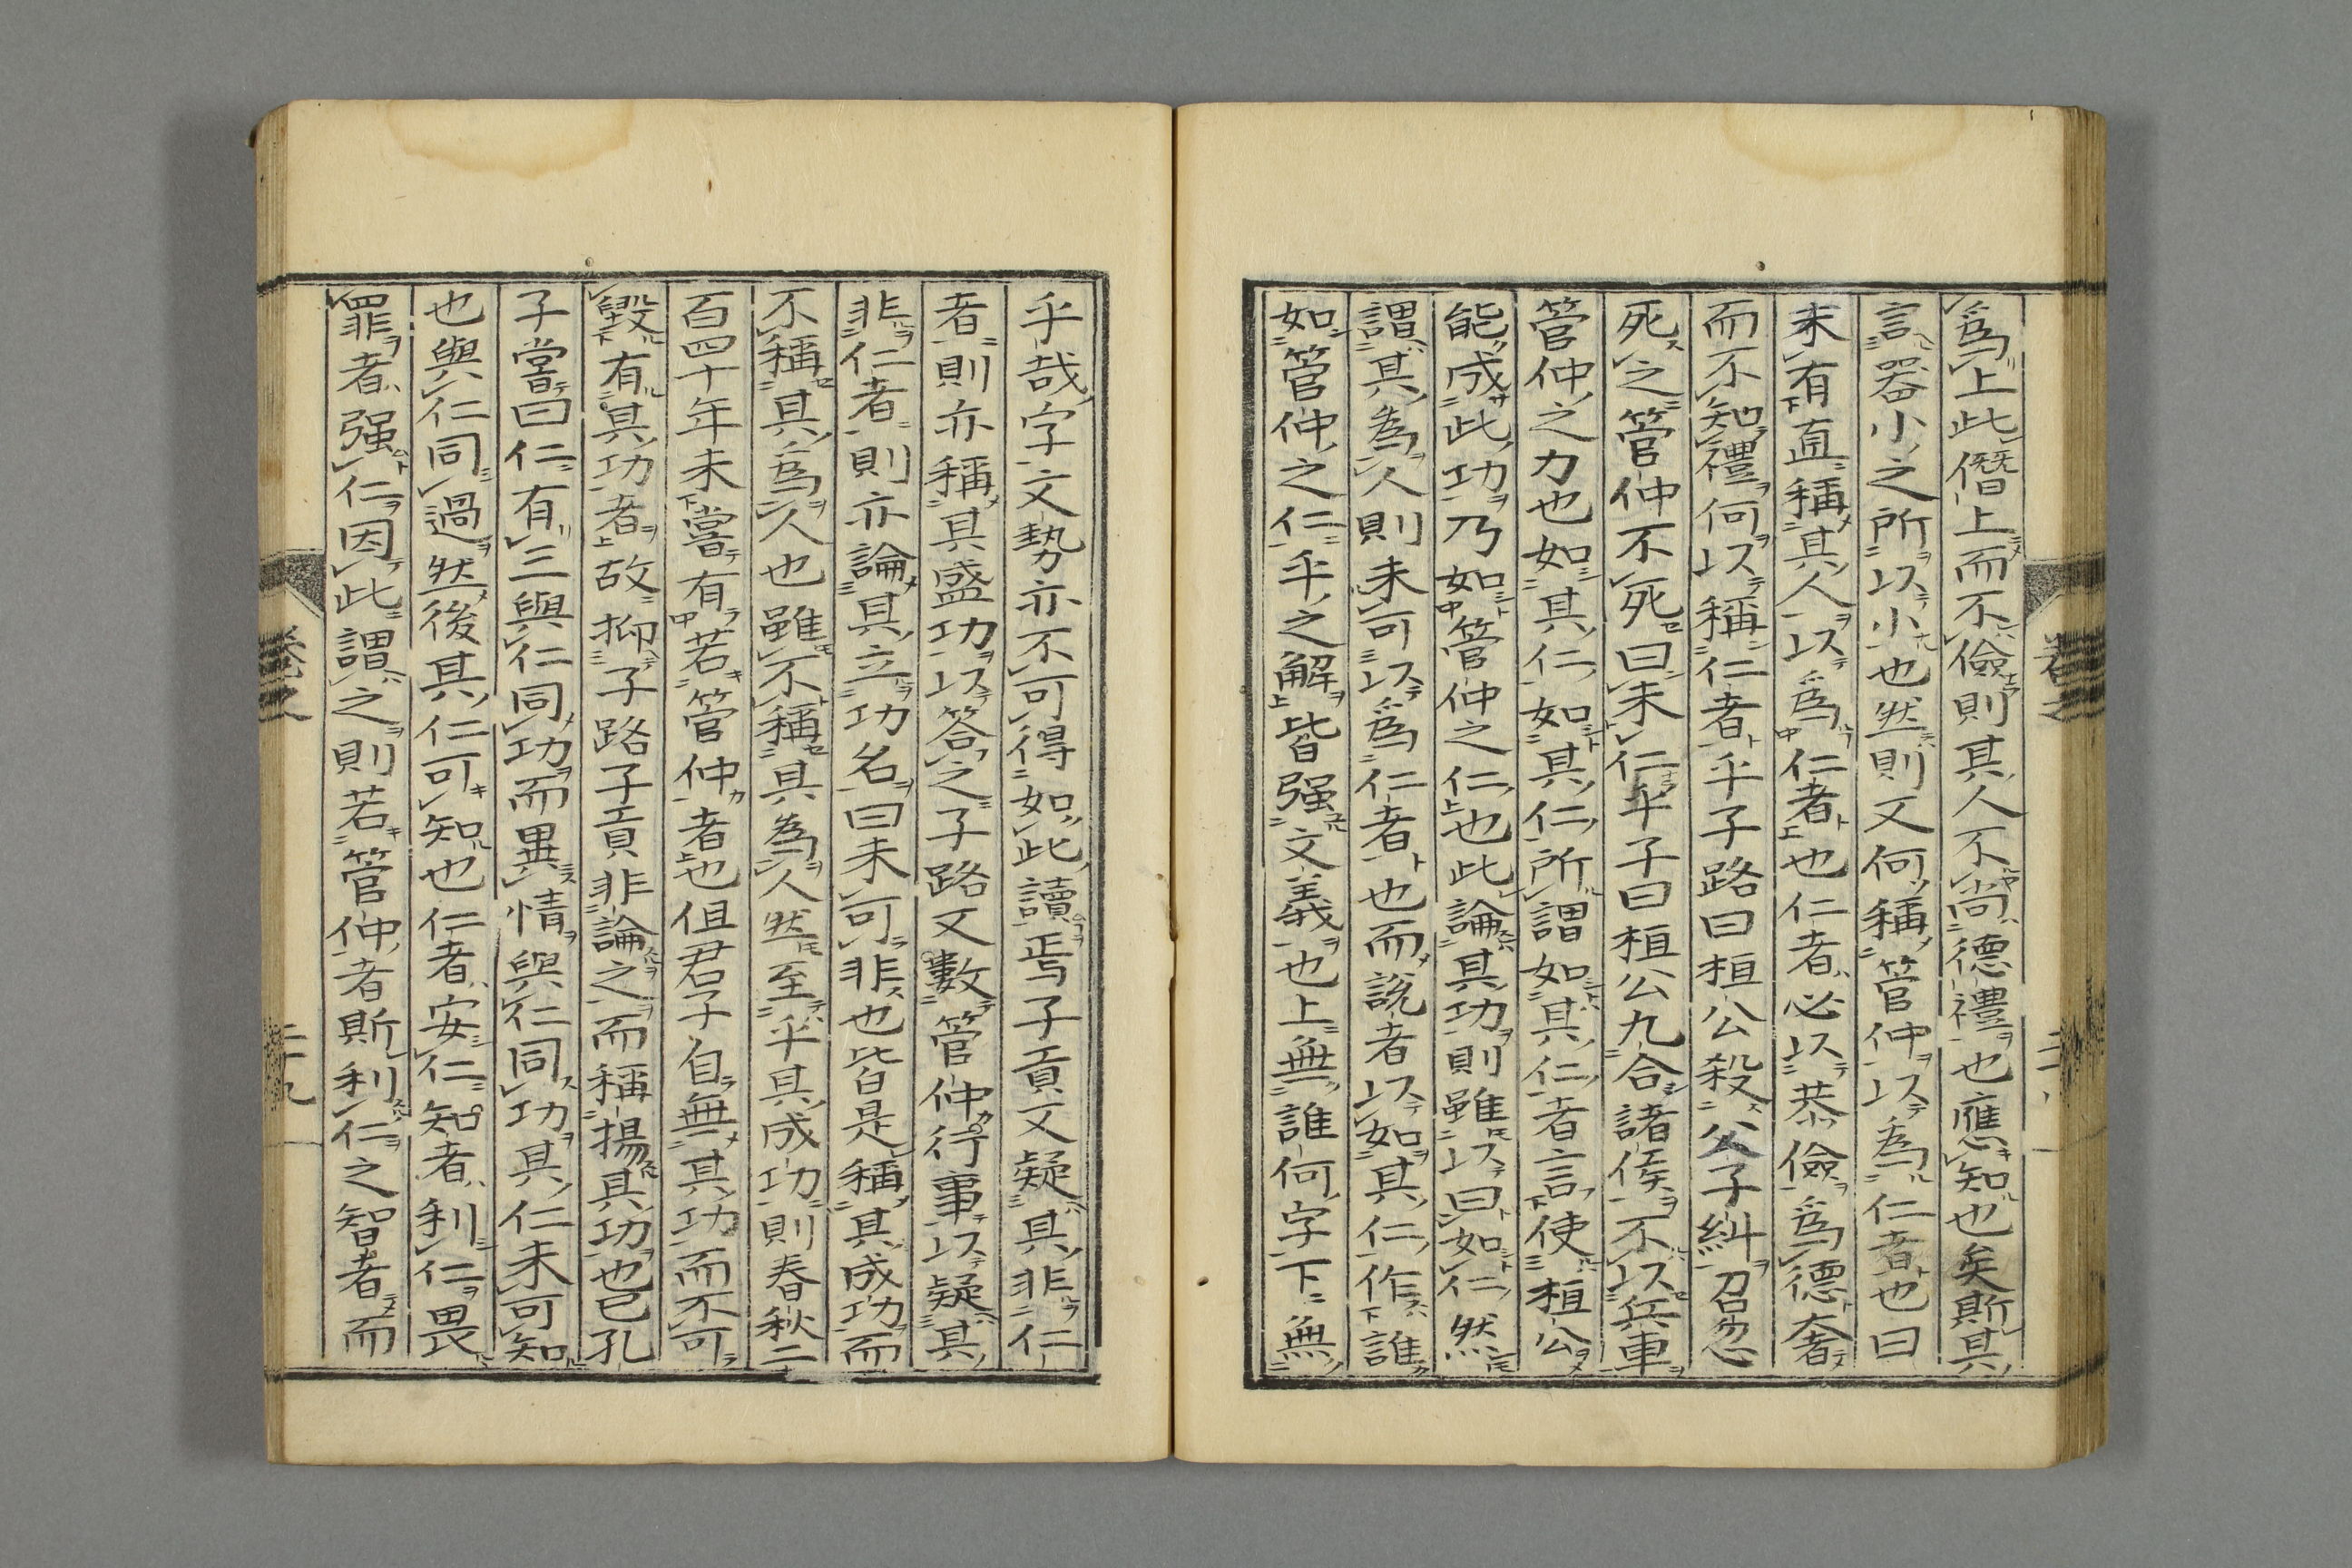 爲上此僭上而不儉則其人不尚德禮也應知也矣斯其
言器小之所以小也然則又何稱管仲以爲仁者也曰
未有直稱其人以爲仁者也仁者必以恭儉爲德奢
而不知禮何以稱仁者乎子路曰桓公殺公子糾召忽
死之管仲不死曰未仁乎子曰桓公九合諸侯不以兵車
管仲之力也如其仁如其仁所謂如其仁者言使桓公
能成此功乃如管仲之仁也此論其功則雖以曰如仁然
謂其爲人則未可以爲仁者也而説者以如其仁作誰
如管仲之仁乎之解皆强文義也上無誰何字下無
乎哉字文勢亦不可得如此讀焉子貢又疑其非仁
者則亦稱其盛功以答之子路又數管仲行事以疑其
非仁者則亦論其立功名曰未可非也皆是稱其成功而
不稱其爲人也雖不稱其爲人然至乎其成功則春秋二
百四十年未嘗有若管仲者也但君子自無其功而不可
毀有其功者故抑子路子貢非論之而稱揚其功也已孔
子嘗曰仁有三與仁同功而異情與仁同功其仁未可知
也與仁同過然後其仁可知也仁者安仁知者利仁畏
罪者强仁因此謂之則若管仲者斯利仁之智者而